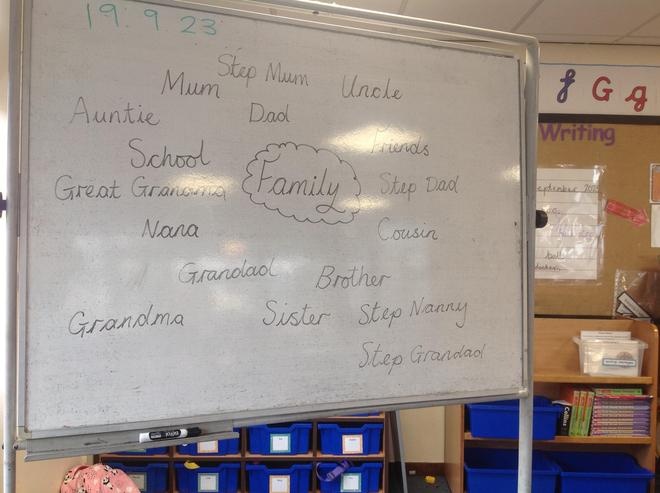 19.9.23
Step Mum
Mum
Uncle
Auntie
Dad
School
Friends
Great Grandma
Family
Step Dad
Nana
Cousin
Grandad
Brother
Grandma
Sister
Step Nanny
Step Grandad
f G g
Writing
Collins